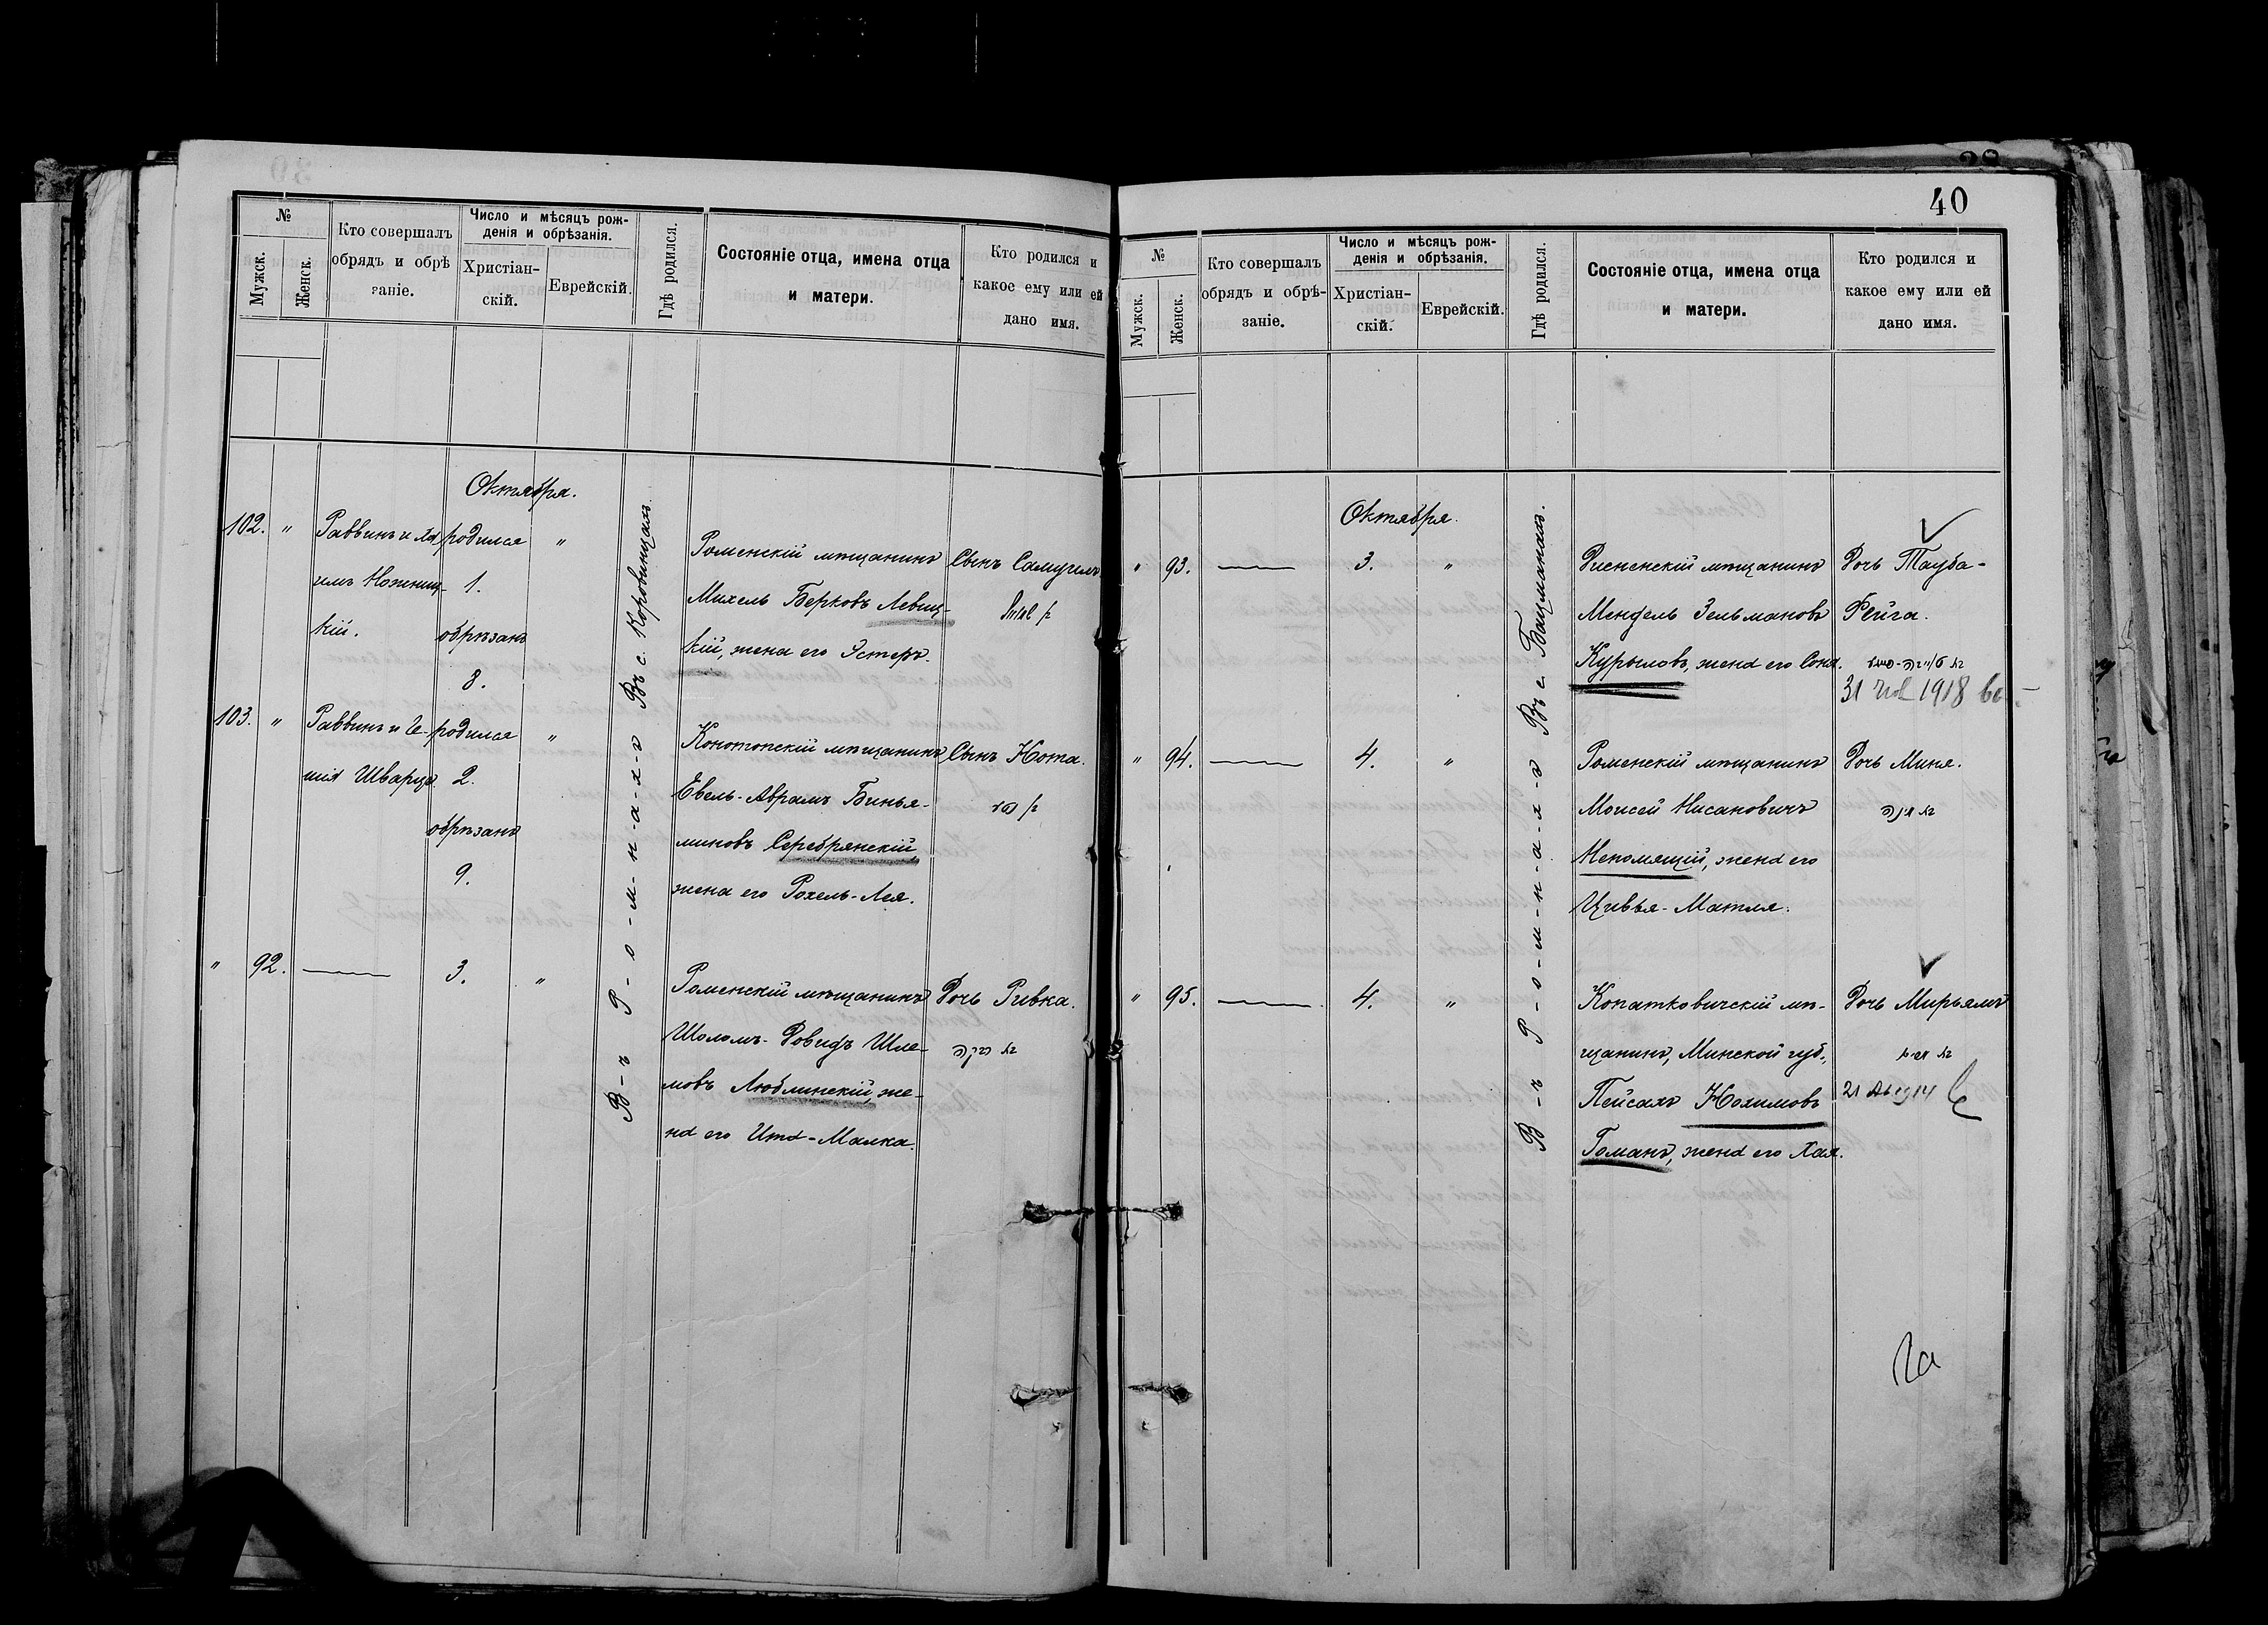 №
Мужск.
Женск.
Кто совершалъ
обрядъ и обрѣ
заніе.
Число и мѣсяцъ рож-
денія и обрѣзанія.
Христіан-
скій.
Еврейскій.
Гдѣ родился.
Состояніе отца, имена отца
и матери.
Кто родился и
какое ему или ей
дано имя.
Октября.
102. "
Раввинъ и
Ножниц-
кій.
родился
1.
обрѣзанъ
8.
"
Въ с. Коровинцахъ.
Роменскій мѣщанинъ
Михель Берковъ Левиц-
кій, жена его Эстеръ.
Сынъ Самуилъ
103. "
Раввинъ и Іе-
шія Шварцъ.
родился
2.
обрѣзанъ
9.
"
В-ъ Р-о-м-н-а-х-ъ
Конотопскій мѣщанинъ
Евель-Аврамъ Бинья-
миновъ Серебрянскій,
жена его Рохель-Лея.
Сынъ Нота.
בן נטע
" 92.
3.
"
Роменскій мѣщанинъ
Шоломъ-Довидъ Шле-
мовъ Люблинскій, же-
на его Ита-Малка.
Дочь Ривка.
בת רבקה
40
№
Мужск.
Женск.
Кто совершалъ
обрядъ и обрѣ-
заніе.
Число и мѣсяцъ рож-
денія и обрѣзанія.
Христіан-
скій.
Еврейскій.
Гдѣ родился.
Состояніе отца, имена отца
и матери.
Кто родился и
какое ему или ей
дано имя.
Октября.
" 93.
3.
"
Въ с. Бацманахъ.
Мендель Зельмановъ
Курыловъ, жена его Соня.
Дочь Тауба-
Фейга.
31 1918
" 94.
4.
"
В-ъ Р-о-м-н-а-х-ъ
Роменскій мѣщанинъ
Моисей Нисановичъ
Непомящій, жена его
Цивья-Матля.
Дочь Миня.
בת מינה
" 95.
4.
"
Копаткевичскій мѣ-
щанинъ, Минской губ.,
Пейсахъ Нохимовъ
Гоманъ, жена его Хая.
Дочь Мирьямъ
בת מרים
21 Ав 1914